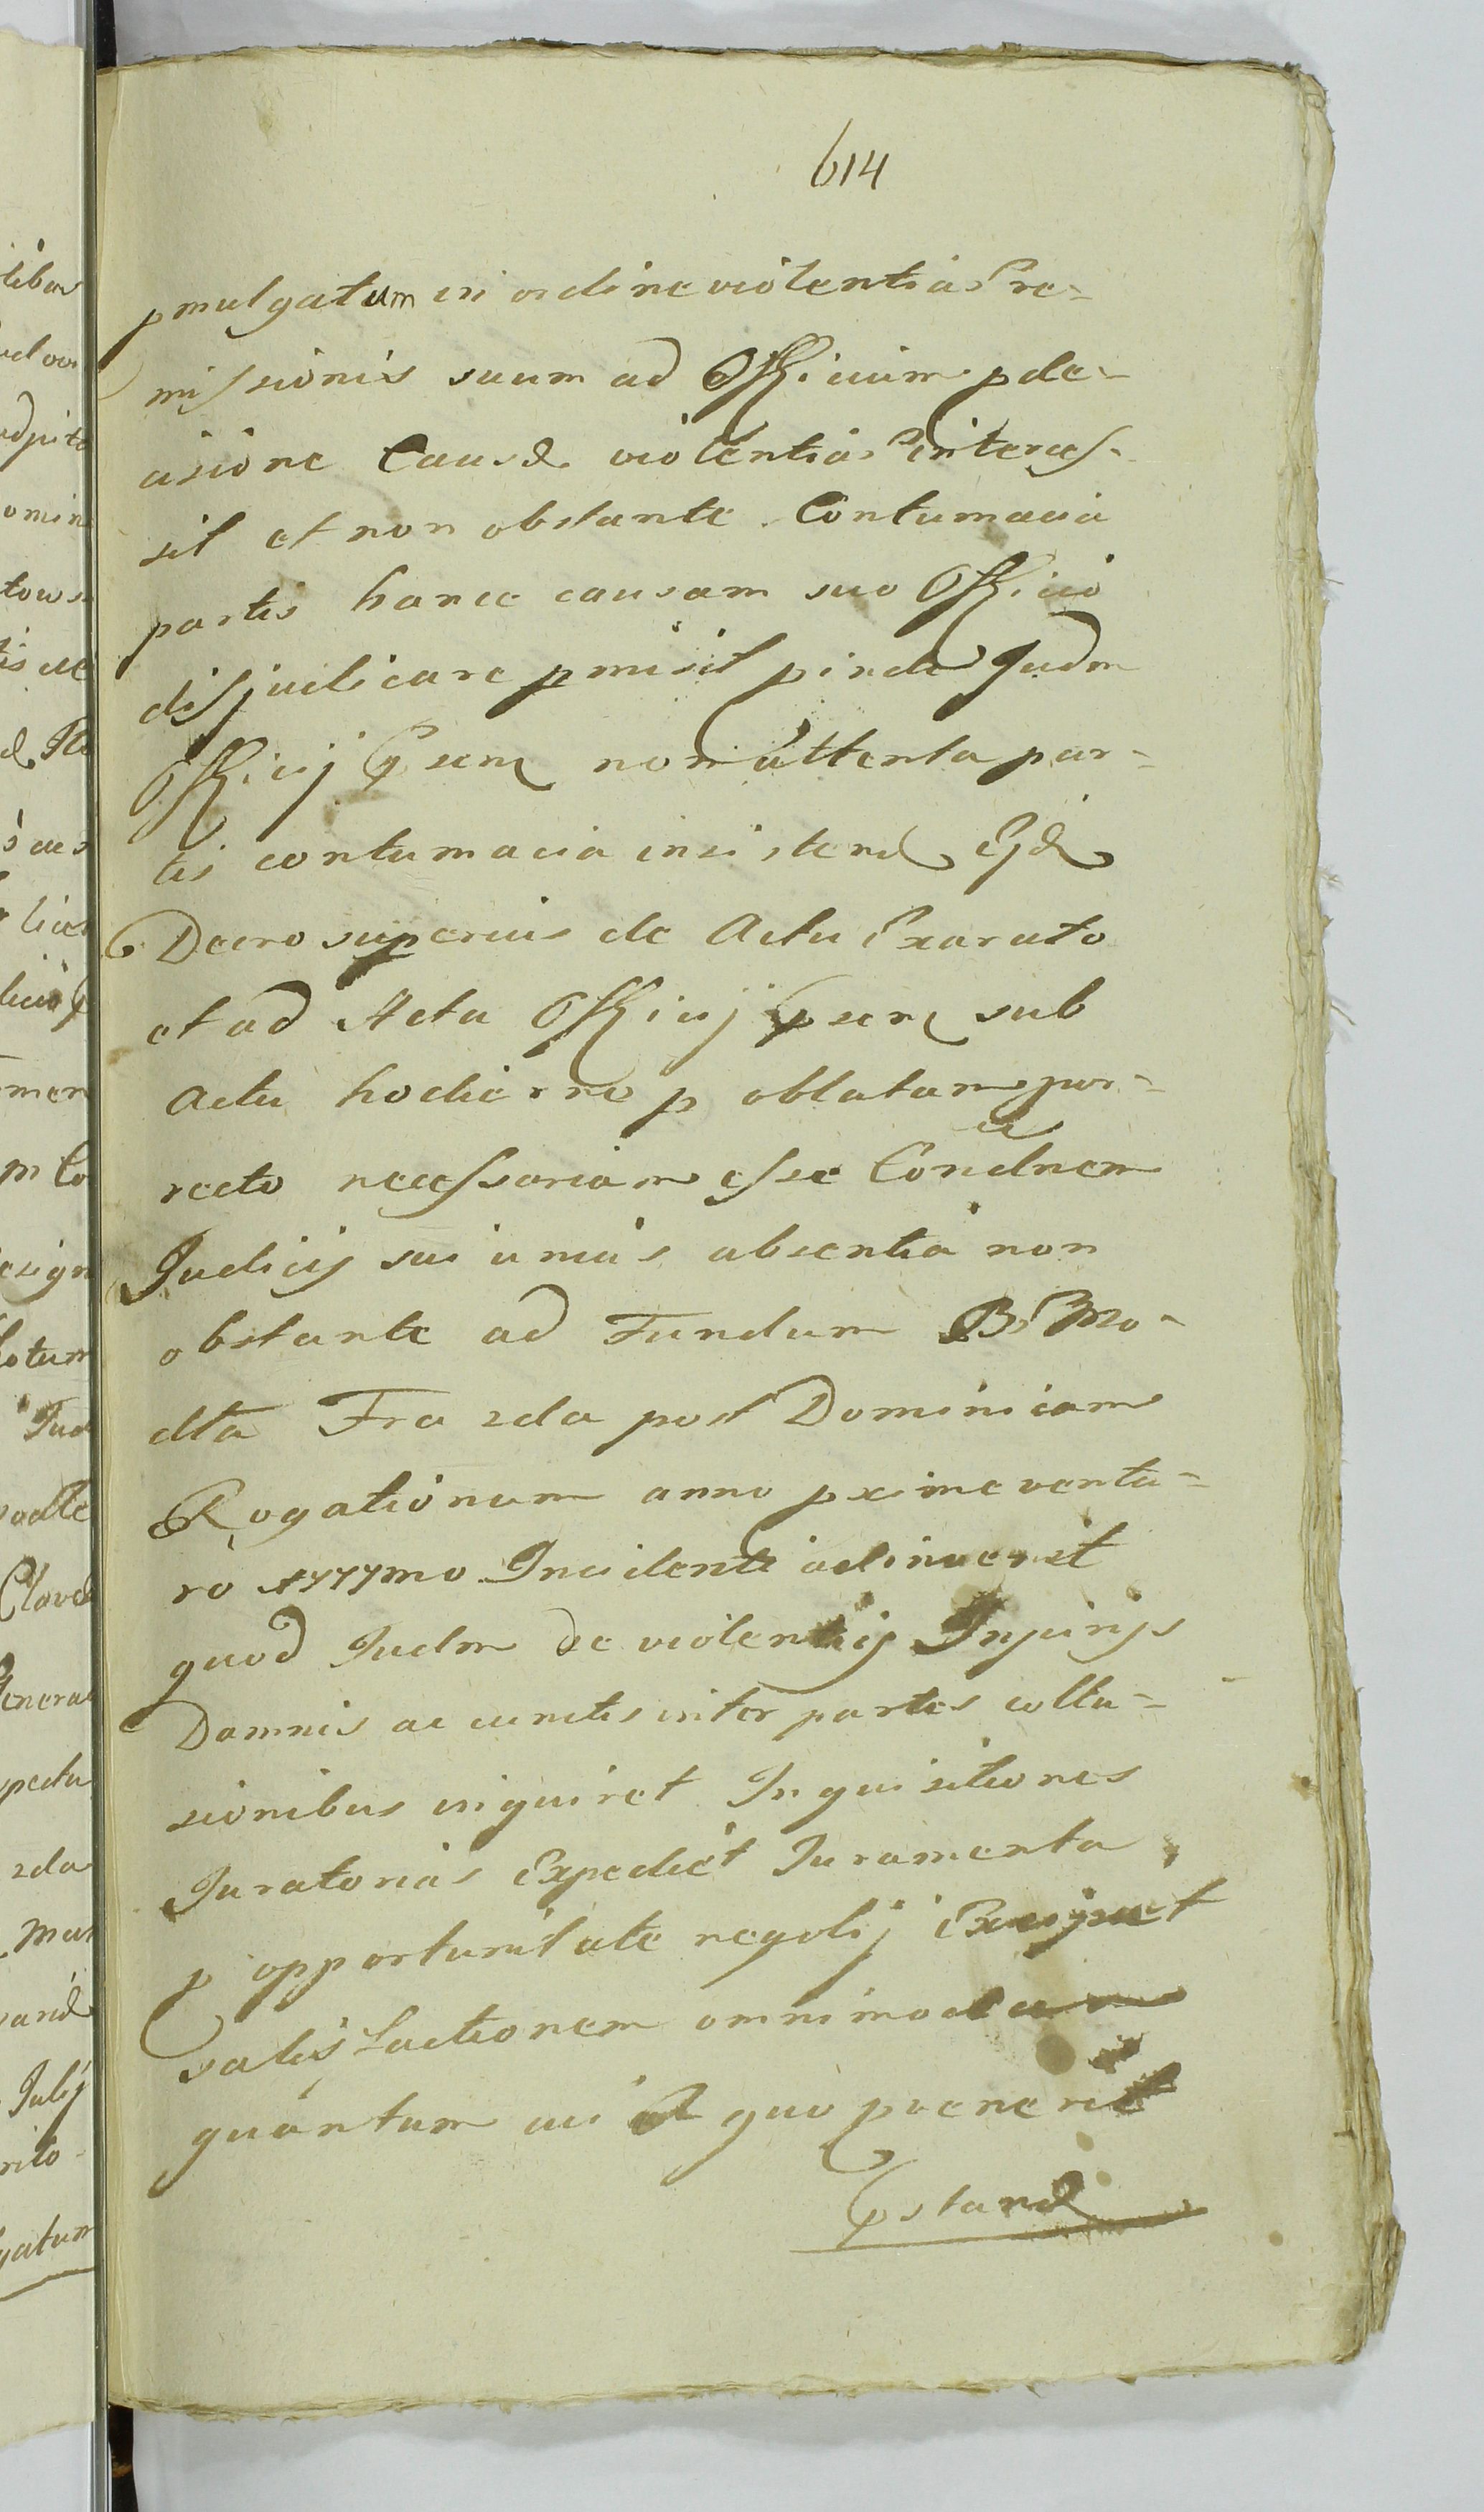 614
pmulgatum in ordine violentias Pre-
missionis suum ad Officium p de-
cisione Causæ violentias interces-
sit et non obstante Contumacia
partis hance causam suo Officio
disjudicare pmisit pinde Judm
Officij psens non attenta par-
tis contumacia insistend
Decro superius de Actu Exarato
et ad Acta Officij psens sub
Actu hodierno p oblatam por-
recto necessariam esse Condnem
Judicij sui unius absentia non
obstante ad Fundum B. Mo-
dta Fra 2da post Dominicam
Rogationum anno pxime ventu-
ro 1777mo Incidente adinvenit
quod Judm de violentijs Injurijs
Damnis ac cunctis inter partes collu-
sionibus inquiret Inquisitiones
Juratorias Expediet Juramenta
p opportunitate negotij
satisfactionem omnimodam
quantum cui A quo pvenerit
pstand